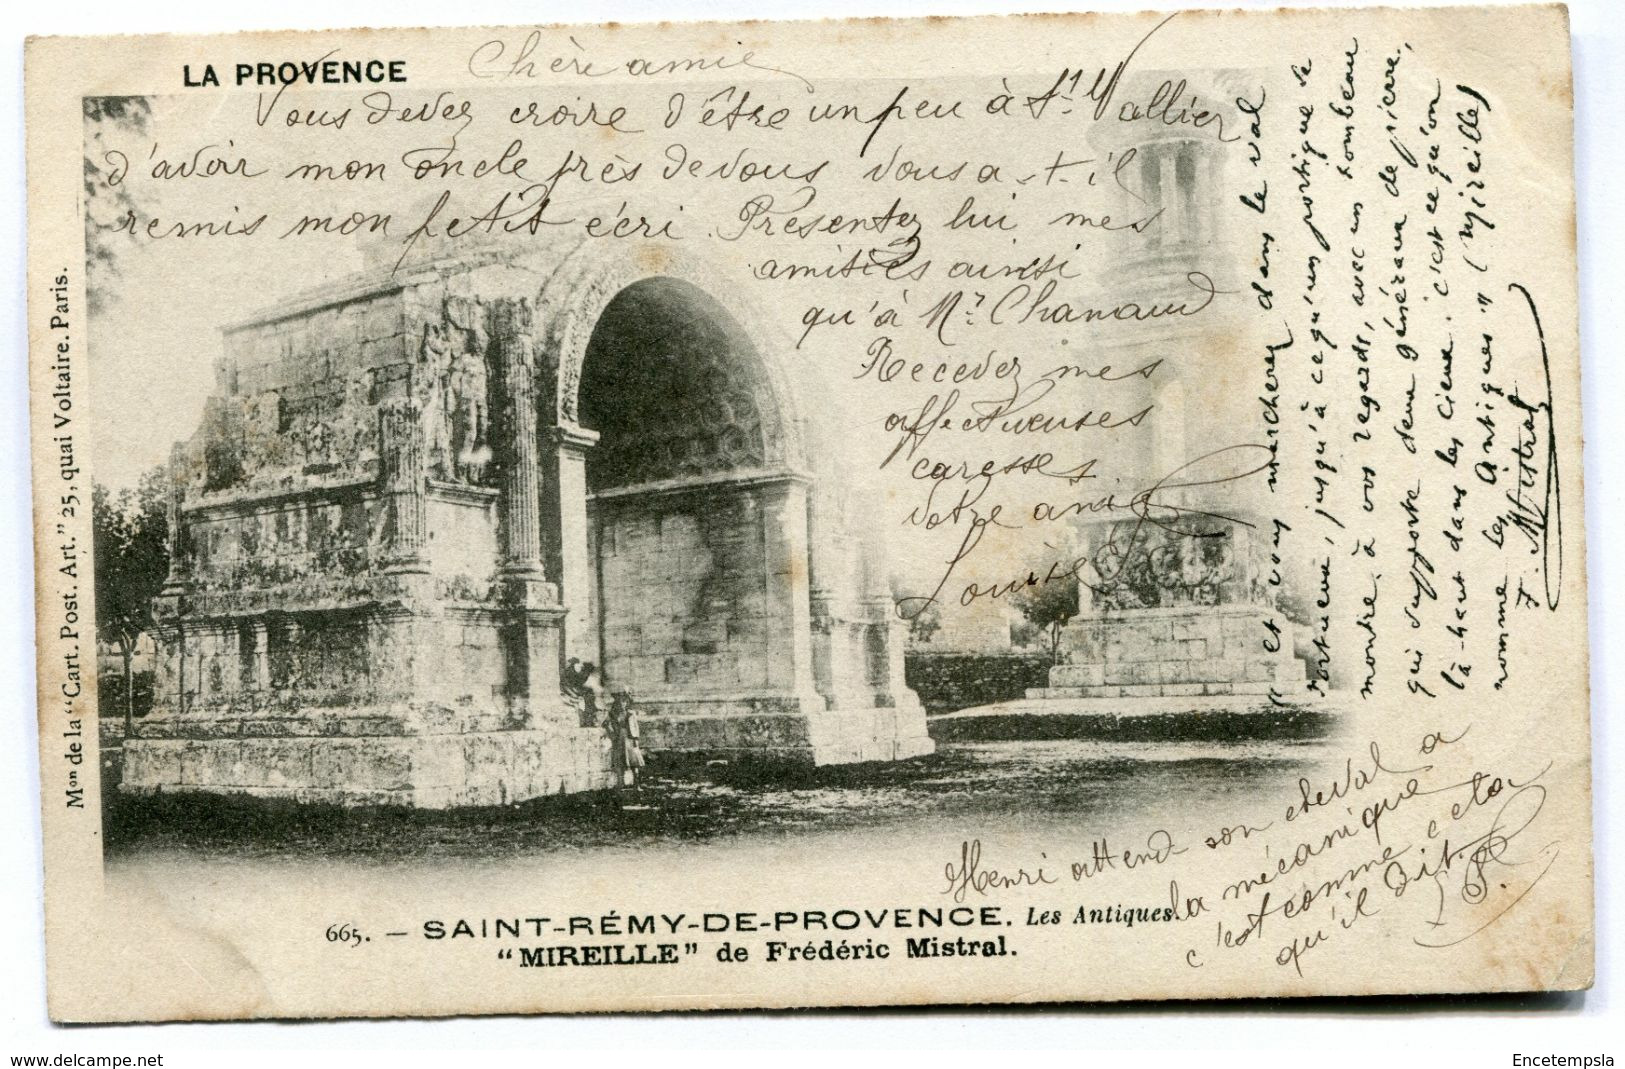 LA PROVENCE
Chère amie
Vous devez croire d'être un peu à St. Vallier
d'avoir mon oncle près de vous vous a-t-il
remis mon petit écri. Présentez lui mes
amitiés ainsi
qu'à Mr. Chanaud
Recevez mes
affectueuses
caresses
votre amie
Louise
Mon de la "Cart. Post. Art." 25, quai Voltaire. Paris.
"et vous marcherez dans le val
Tortueux, jusqu'à ce qu'un portique se
montre à vos regards, avec un tombeau
qui supporte deux généraux de pierre,
là-haut dans les cieux. c'est ce qu'on
nomme les Antiques" (Mireille)
F. Mistral
Henri attend son cheval a
la mécanique
c'est comme cela
qu'il dit.
665. — SAINT-RÉMY-DE-PROVENCE. Les Antiques.
"MIREILLE" de Frédéric Mistral.
www.delcampe.net
Encetempsla